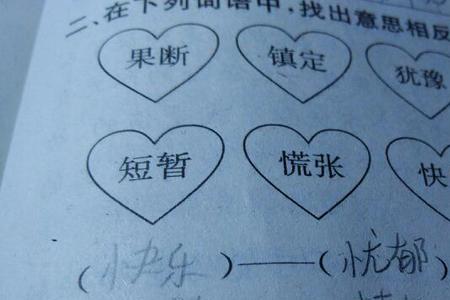 二、在下列词语中,找出意思相反
果断 镇定 犹豫
短暂 慌张 快
(快乐)——(忧郁)